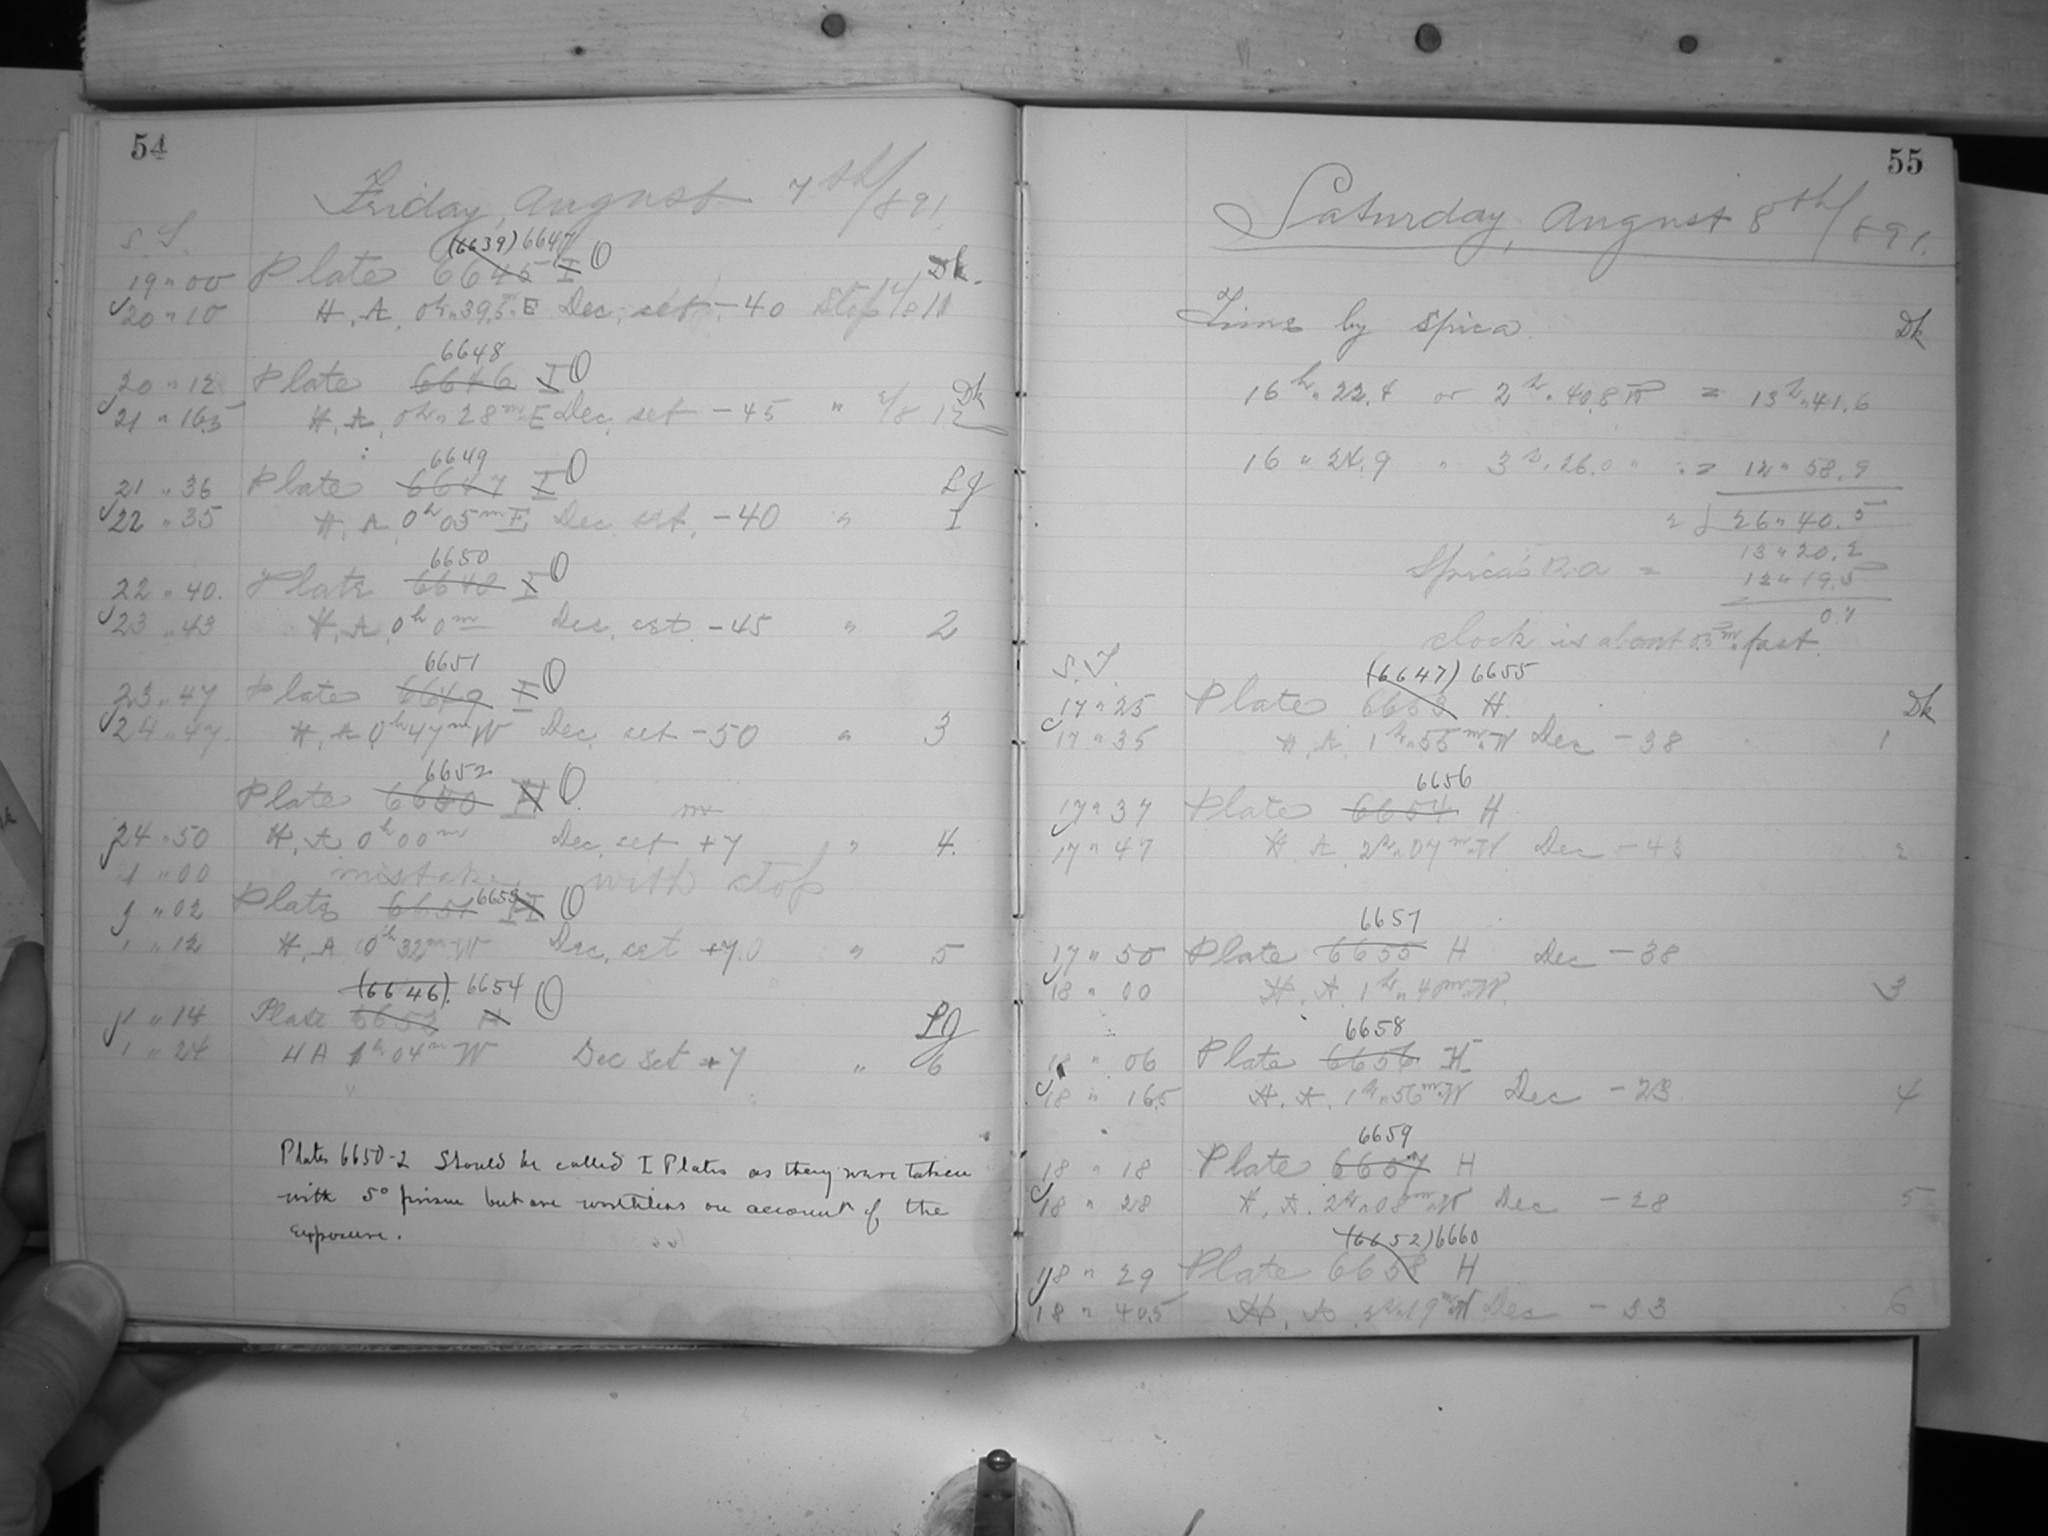 54
Friday, August 7th/891.
S.T.
(6639) 6647
19 " 00 Plate 6645 I O Dk.
20 " 10 H. A. 0h " 39.5m E Dec. set. -40 Stop
6648
20 " 12 Plate 6646 I O Dk
21 " 16.5 H. A. 0h " 28m " E Dec. set -45 " 12
6649
21 " 36 Plate 6647 I O Lg
22 " 35 H. A. 0h 05m E Dec. set. -40 " 1
6650
22 " 40. Plate 6648 I O
23 " 43 H. A. 0h 0m Dec. set. -45 " 2
6651
23 " 47 Plate 6649 I O
24 " 47. H. A. 0h 47m W Dec. set -50 " 3
6652
Plate 6650 O
24 " 50 H. A. 0h 00m Dec. set +7 " 4.
1 " 00 mistake with stop
1 " 02 Plate 6651 6653 O
1 " 12 H. A 0h 32m W Dec. set +7.0 " 5
(6646). 6654
1 " 14 Plate 6652 H O Lg
1 " 24 H A 1h 04m W Dec set +7 " 6
Plates 6650-2 Should be called I Plates as they were taken
with 5° prism but are worthless on account of the
exposure.
55
Saturday, August 8th/891.
Time by Spica. Dk
16h " 22.4 or 2h " 40.8 W = 13h " 41.6
16 " 24.9 " 3h " 26.0 " = 12 " 58.9
2 26 " 40.5
13 " 20.2
Spica's R.A = 13 " 19.5
0.7
clock is about 0.5m fast.
S.T.
(6647) 6655
17 " 25 Plate 6653 H. Dk
17 " 35 H. A. 1h " 55m " W Dec -38 1
6656
17 " 37 Plate 6654 H
17 " 47 H. A. 2h " 07m " W Dec -43 2
6657
17 " 50 Plate 6655 H Dec -38
18 " 00 H. A. 1h " 40m W. 3
6658
18 " 06 Plate 6656 H
18 " 16.5 H. A. 1h " 56m W Dec -23 4
6659
18 " 18 Plate 6657 H
18 " 28 H. A. 2h " 08m " W Dec -28 5
(6652) 6660
18 " 29 Plate 6658 H
18 " 40.5 H. A. 2h " 19m W Dec -33 6